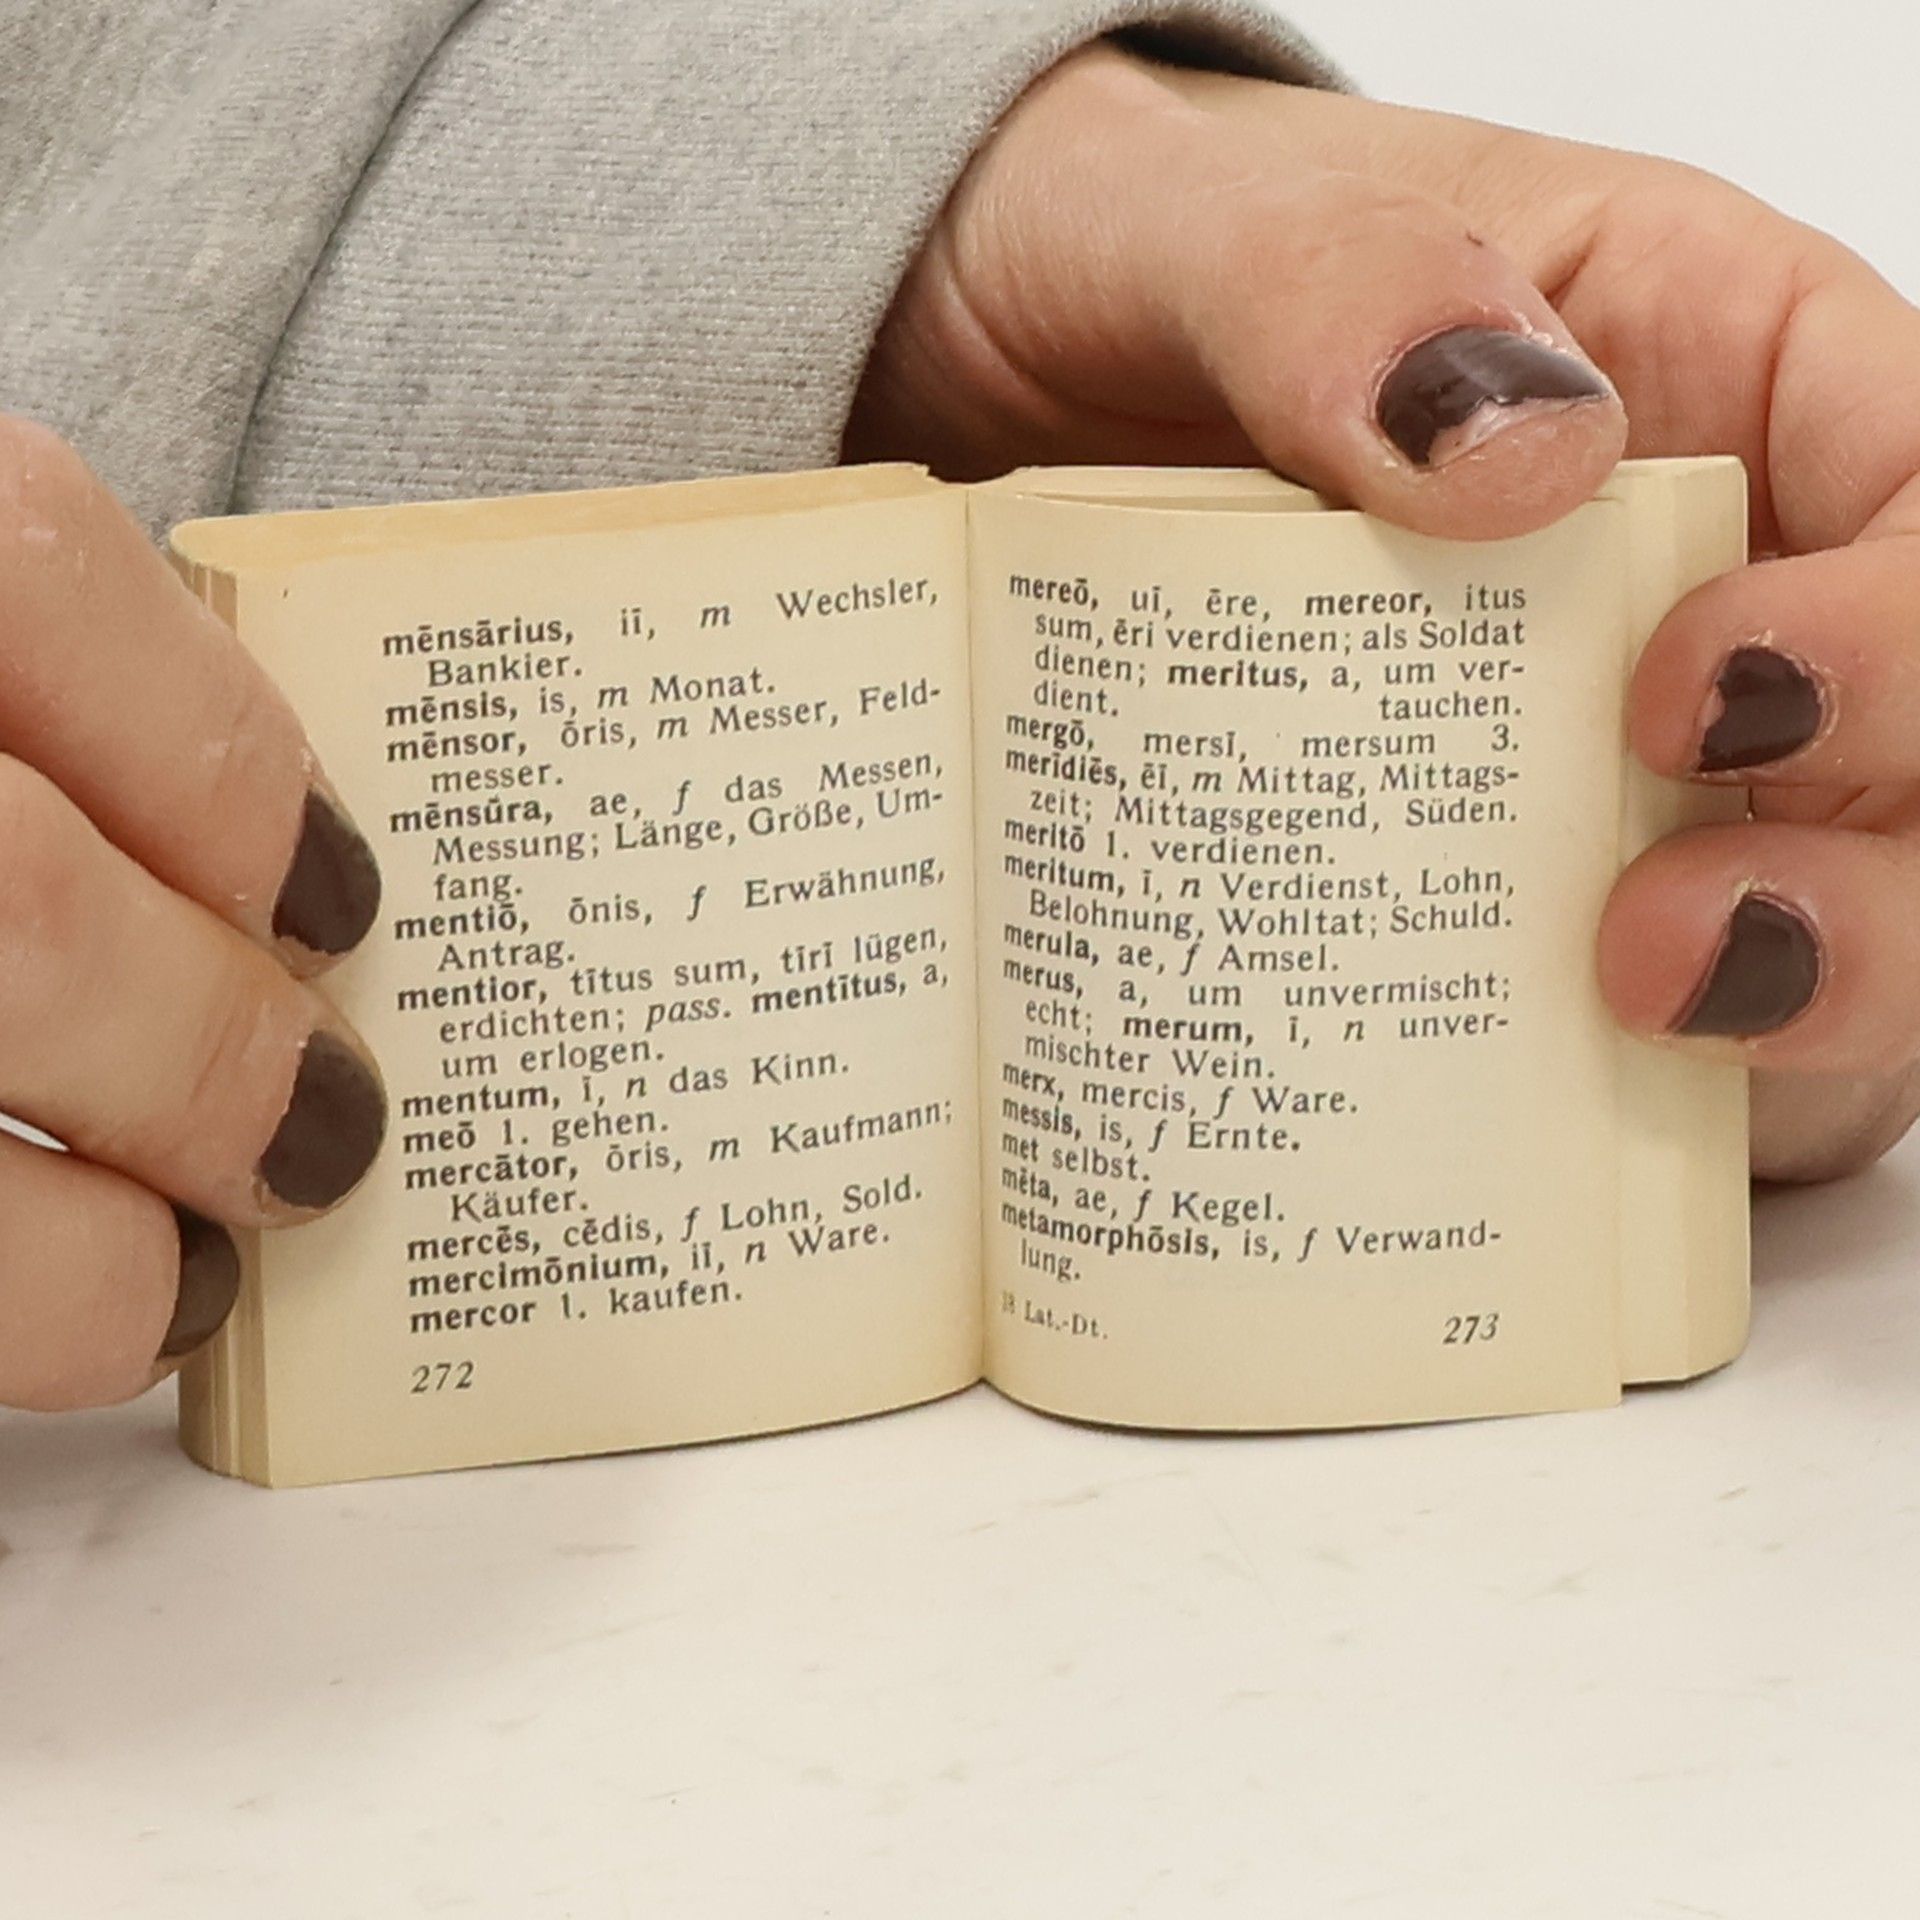 mēnsārius, iī, m Wechsler,
Bankier.
mēnsis, is, m Monat.
mēnsor, ōris, m Messer, Feld-
messer.
mēnsūra, ae, f das Messen,
Messung; Länge, Größe, Um-
fang.
mentiō, ōnis, f Erwähnung,
Antrag.
mentior, tītus sum, tīrī lügen,
erdichten; pass. mentītus, a,
um erlogen.
mentum, ī, n das Kinn.
meō 1. gehen.
mercātor, ōris, m Kaufmann;
Käufer.
mercēs, cēdis, f Lohn, Sold.
mercimōnium, iī, n Ware.
mercor 1. kaufen.
272
mereō, uī, ēre, mereor, itus
sum, ēri verdienen; als Soldat
dienen; meritus, a, um ver-
dient. tauchen.
mergō, mersī, mersum 3.
merīdiēs, ēī, m Mittag, Mittags-
zeit; Mittagsgegend, Süden.
meritō 1. verdienen.
meritum, ī, n Verdienst, Lohn,
Belohnung, Wohltat; Schuld.
merula, ae, f Amsel.
merus, a, um unvermischt;
echt; merum, ī, n unver-
mischter Wein.
merx, mercis, f Ware.
messis, is, f Ernte.
met selbst.
mēta, ae, f Kegel.
metamorphōsis, is, f Verwand-
lung.
Lat.-Dt.
273